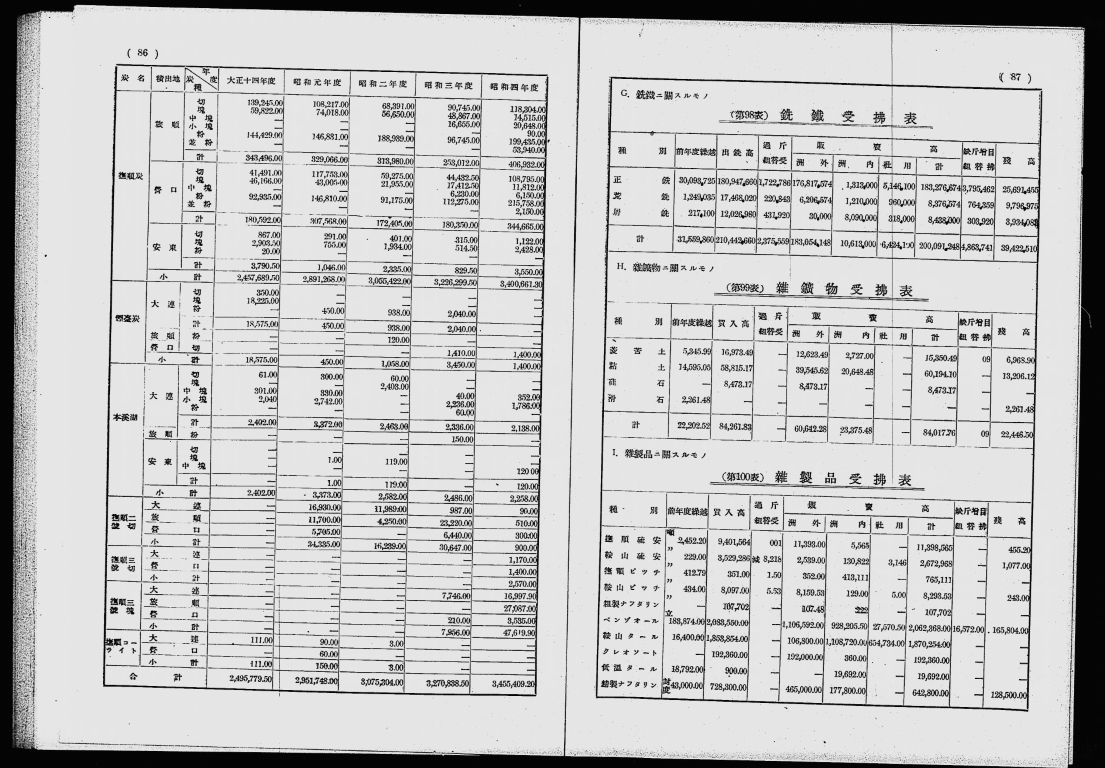 ( 86 )
炭名 積出地 年度 炭種 大正十四年度 昭和元年度 昭和二年度 昭和三年度 昭和四年度
撫順炭
旅順
切 139,245.00 108,217.00 68,391.00 90,745.00 118,304.00
塊 59,822.00 74,018.00 56,650.00 48,867.00 14,515.00
中塊 — — — 16,655.00 20,648.00
小塊 — — — — 90.00
粉 144,429.00 146,831.00 188,939.00 96,745.00 199,435.00
並粉 — — — — 53,940.00
計 343,496.00 329,066.00 313,980.00 253,012.00 406,932.00
營口
切 41,491.00 117,753.00 59,275.00 44,432.50 108,795.00
塊 46,166.00 43,005.00 21,955.00 17,412.50 11,812.00
中塊 — — — 6,230.00 6,150.00
粉 92,935.00 146,810.00 91,175.00 112,275.00 215,758.00
並粉 — — — — 2,150.00
計 180,592.00 307,568.00 172,405.00 180,350.00 344,665.00
安東
切 867.00 291.00 401.00 315.00 1,122.00
塊 2,903.50 755.00 1,934.00 514.50 2,428.00
粉 20.00 — — — —
計 3,790.50 1,046.00 2,335.00 829.50 3,550.00
小計 2,457,689.50 2,891,268.00 3,055,422.00 3,226,299.50 3,400,661.30
煙臺炭
大連
切 350.00 — — — —
塊 18,225.00 — — — —
粉 — 450.00 938.00 2,040.00 —
計 18,575.00 450.00 938.00 2,040.00 —
旅順 粉 — — 120.00 — —
營口 切 — — — 1,410.00 1,400.00
小計 18,575.00 450.00 1,058.00 3,450.00 1,400.00
本溪湖
大連
切 61.00 300.00 60.00 — —
塊 — — 2,403.00 — —
中塊 301.00 330.00 — 40.00 352.00
小塊 2,040 2,742.00 — 2,236.00 1,786.00
粉 — — — 60.00 —
計 2,402.00 3,372.00 2,463.00 2,336.00 2,138.00
旅順 粉 — — — 150.00 —
安東
切 — — — — —
塊 — 1.00 119.00 — —
中塊 — — — — 120.00
計 — 1.00 119.00 — 120.00
小計 2,402.00 3,373.00 2,582.00 2,486.00 2,258.00
撫順二號切
大連 — 16,930.00 11,989.00 987.00 90.00
旅順 — 11,700.00 4,250.00 23,220.00 510.00
營口 — 5,705.00 — 6,440.00 300.00
小計 — 34,335.00 16,239.00 30,647.00 900.00
撫順三號切
大連 — — — — 1,170.00
營口 — — — — 1,400.00
小計 — — — — 2,570.00
撫順三號塊
大連 — — — 7,746.00 16,997.90
旅順 — — — — 27,087.00
營口 — — — 210.00 3,535.00
小計 — — — 7,956.00 47,619.90
撫順コーライト
大連 111.00 90.00 3.00 — —
營口 — 60.00 — — —
小計 111.00 150.00 3.00 — —
合計 2,495,779.50 2,951,748.00 3,075,304.00 3,270,838.50 3,455,409.20
( 87 )
G. 銑鐵ニ關スルモノ
(第98表) 銑鐵受拂表
種別 前年度繰越 出銑高 過斤組替受 販賣高 洲外 洲內 社用 計 缺斤增目組替拂 殘高
正銑 30,093,725 180,947,660 1,722,786 176,817,574 1,313,000 5,146,100 183,276,674 3,795,462 25,691,455
荒銑 1,249,035 17,468,020 220,843 6,206,574 1,210,000 960,000 8,376,574 764,359 9,796,975
屑銑 217,100 12,026,980 431,920 30,000 8,090,000 318,000 8,438,000 303,920 3,934,083
計 31,559,860 210,442,660 2,375,559 183,054,148 10,613,000 6,424,100 200,091,248 4,863,741 39,422,510
H. 雜鑛物ニ關スルモノ
(第99表) 雜鑛物受拂表
種別 前年度繰越 買入高 過斤組替受 販賣高 洲外 洲內 社用 計 缺斤增目組替拂 殘高
菱苦土 5,345.99 16,973.49 — 12,623.49 2,727.00 — 15,350.49 09 6,968.90
粘土 14,595.05 58,815.17 — 39,545.62 20,648.48 — 60,194.10 — 13,206.12
硅石 — 8,473.17 — 8,473.17 — — 8,473.17 — —
滑石 2,261.48 — — — — — — — 2,261.48
計 22,202.52 84,261.83 — 60,642.28 23,375.48 — 84,017.76 09 22,446.50
I. 雜製品ニ關スルモノ
(第100表) 雜製品受拂表
種別 前年度繰越 買入高 過斤組替受 販賣高 洲外 洲內 社用 計 缺斤增目組替拂 殘高
撫順硫安 噸 2,452.20 9,401,564 001 11,393.00 5,565 — 11,398,565 — 455.20
鞍山硫安 〃 229.00 3,529,286 減 8,218 2,539.00 130,822 3,146 2,672,968 — 1,077.00
撫順ピッチ 〃 412.79 351.00 1.50 352.00 413,111 — 765,111 — —
鞍山ピッチ 〃 434.00 8,097.00 5.53 8,159.53 129.00 5.00 8,293.53 — 243.00
粗製ナフタリン 〃 — 107,702 — 107.48 222 — 107,702 — —
ベンゾオール 立 183,874.00 2,083,550.00 — 1,106,592.00 928,205.50 27,570.50 2,062,368.00 16,572.00 165,804.00
鞍山タール 16,400.00 1,853,854.00 — 106,800.00 1,108,720.00 654,734.00 1,870,254.00 — —
クレオソート — 192,360.00 — 192,000.00 360.00 — 192,360.00 — —
低溫タール 18,792.00 900.00 — — 19,692.00 — 19,692.00 — —
精製ナフタリン 封度 43,000.00 728,300.00 — 465,000.00 177,800.00 — 642,800.00 — 128,500.00